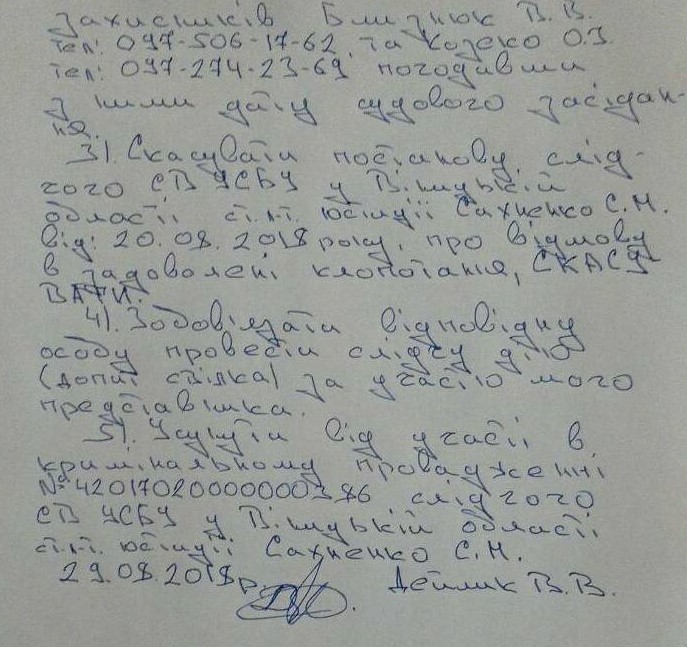 захисників Близнюк В. В.
тел: 097-506-17-62, та Козеко О.З.
тел: 097-274-23-69, погодивши
з ними дату судового засідан-
ня.
3). Скасувати постанову слід-
чого СВ УСБУ у Вінницькій
області ст. л-т. юстиції Сахненко С.М.
від: 20.08.2018 року, про відмову
в задоволені клопотання, СКАСУ-
ВАТИ.
4). Зобовізати відповідну
особу провести слідчу дію
(допит свідка) за участю мого
представника.
5). Усунути від участі в
кримінальному провадженні
№ 42017020000000386 слідчого
СВ УСБУ у Вінницькій області
ст.л-т. юстиції Сахненко С.М.
29.08.2018р. Дейлик В.В.